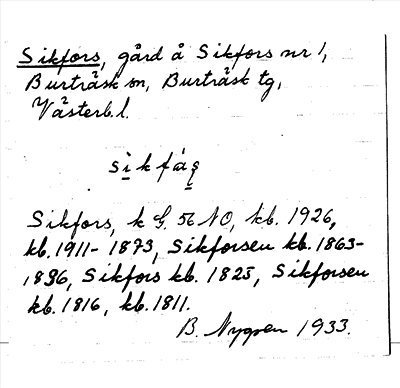 Sikfors, gård å Sikfors nr 1,
Burträsk sn, Burträsk tg,
Västerb. l.
Sikfors, k G. 56 NO, kb. 1926,
kb. 1911-1873, Sikforsen kb. 1863-
1836, Sikfors kb. 1825, Sikforsen
kb. 1816, kb. 1811.
B. Nygren 1933.